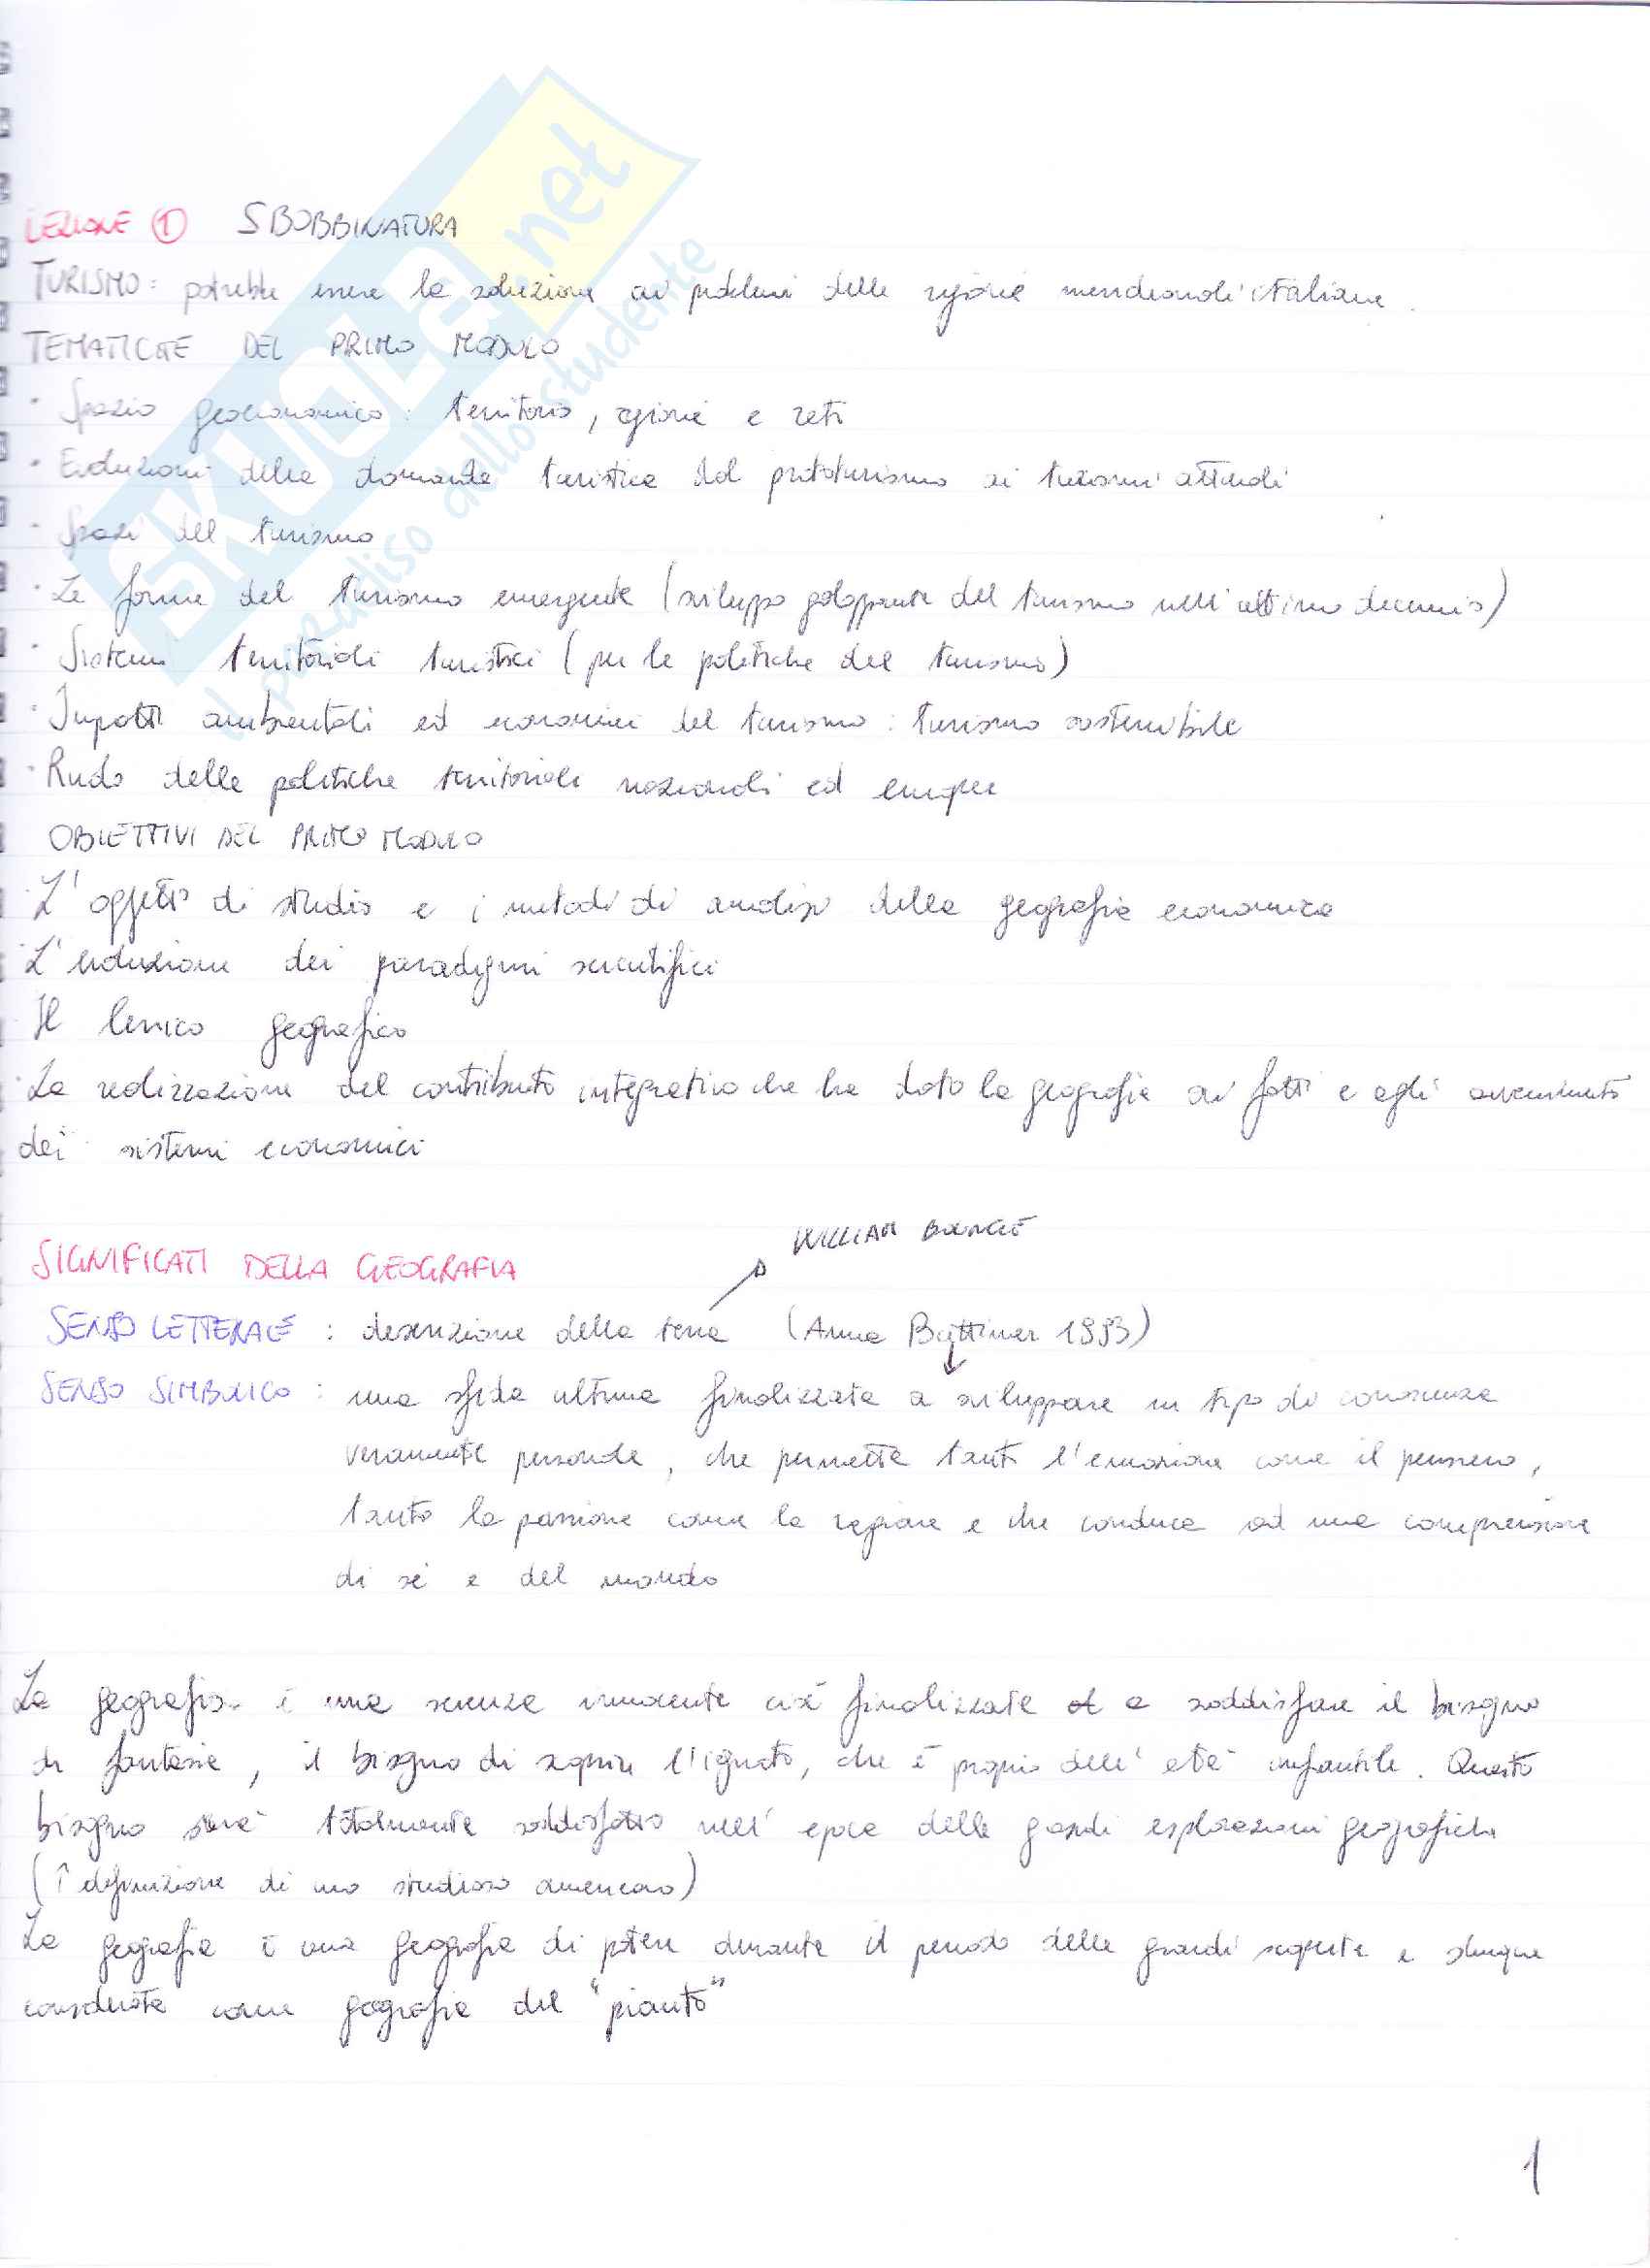 LEZIONE ① SBOBBINATURA
TURISMO: potrebbe essere la soluzione ai problemi delle regioni meridionali italiane.
TEMATICHE DEL PRIMO MODULO
· Spazio geoeconomico: territorio, regioni e reti
· Evoluzioni della domanda turistica dal prototurismo ai turismi attuali
· Spazi del turismo
· Le forme del turismo emergente (sviluppo galoppante del turismo nell'ultimo decennio)
· Sistemi territoriali turistici (per le politiche del turismo)
· Impatti ambientali ed economici del turismo: turismo sostenibile
· Ruolo delle politiche territoriali nazionali ed europee
OBIETTIVI DEL PRIMO MODULO
· L'oggetto di studio e i metodi di analisi della geografia economica
· L'evoluzione dei paradigmi scientifici
· Il lessico geografico
· La realizzazione del contributo integrativo che ha dato la geografia ai fatti e agli avvenimenti
dei sistemi economici
WILLIAM BUNGE
SIGNIFICATI DELLA GEOGRAFIA
SENSO LETTERALE: descrizione della terra (Anne Buttimer 1993)
SENSO SIMBOLICO: una sfida ultima finalizzata a sviluppare un tipo di conoscenza
veramente personale, che permette tanto l'emozione come il pensiero,
tanto la passione come la ragione e che conduce ad una comprensione
di sé e del mondo
La geografia è una scienza innocente cioè finalizzata a soddisfare il bisogno
di fantasia, il bisogno di scoprire l'ignoto, che è proprio dell'età infantile. Questo
bisogno sarà totalmente soddisfatto nell'epoca delle grandi esplorazioni geografiche
(↑ definizione di uno studioso americano)
La geografia è una geografia di potere durante il periodo delle grandi scoperte e dunque
considerata come geografia del "pianto"
1
SKUOLA.net
il paradiso dello studente